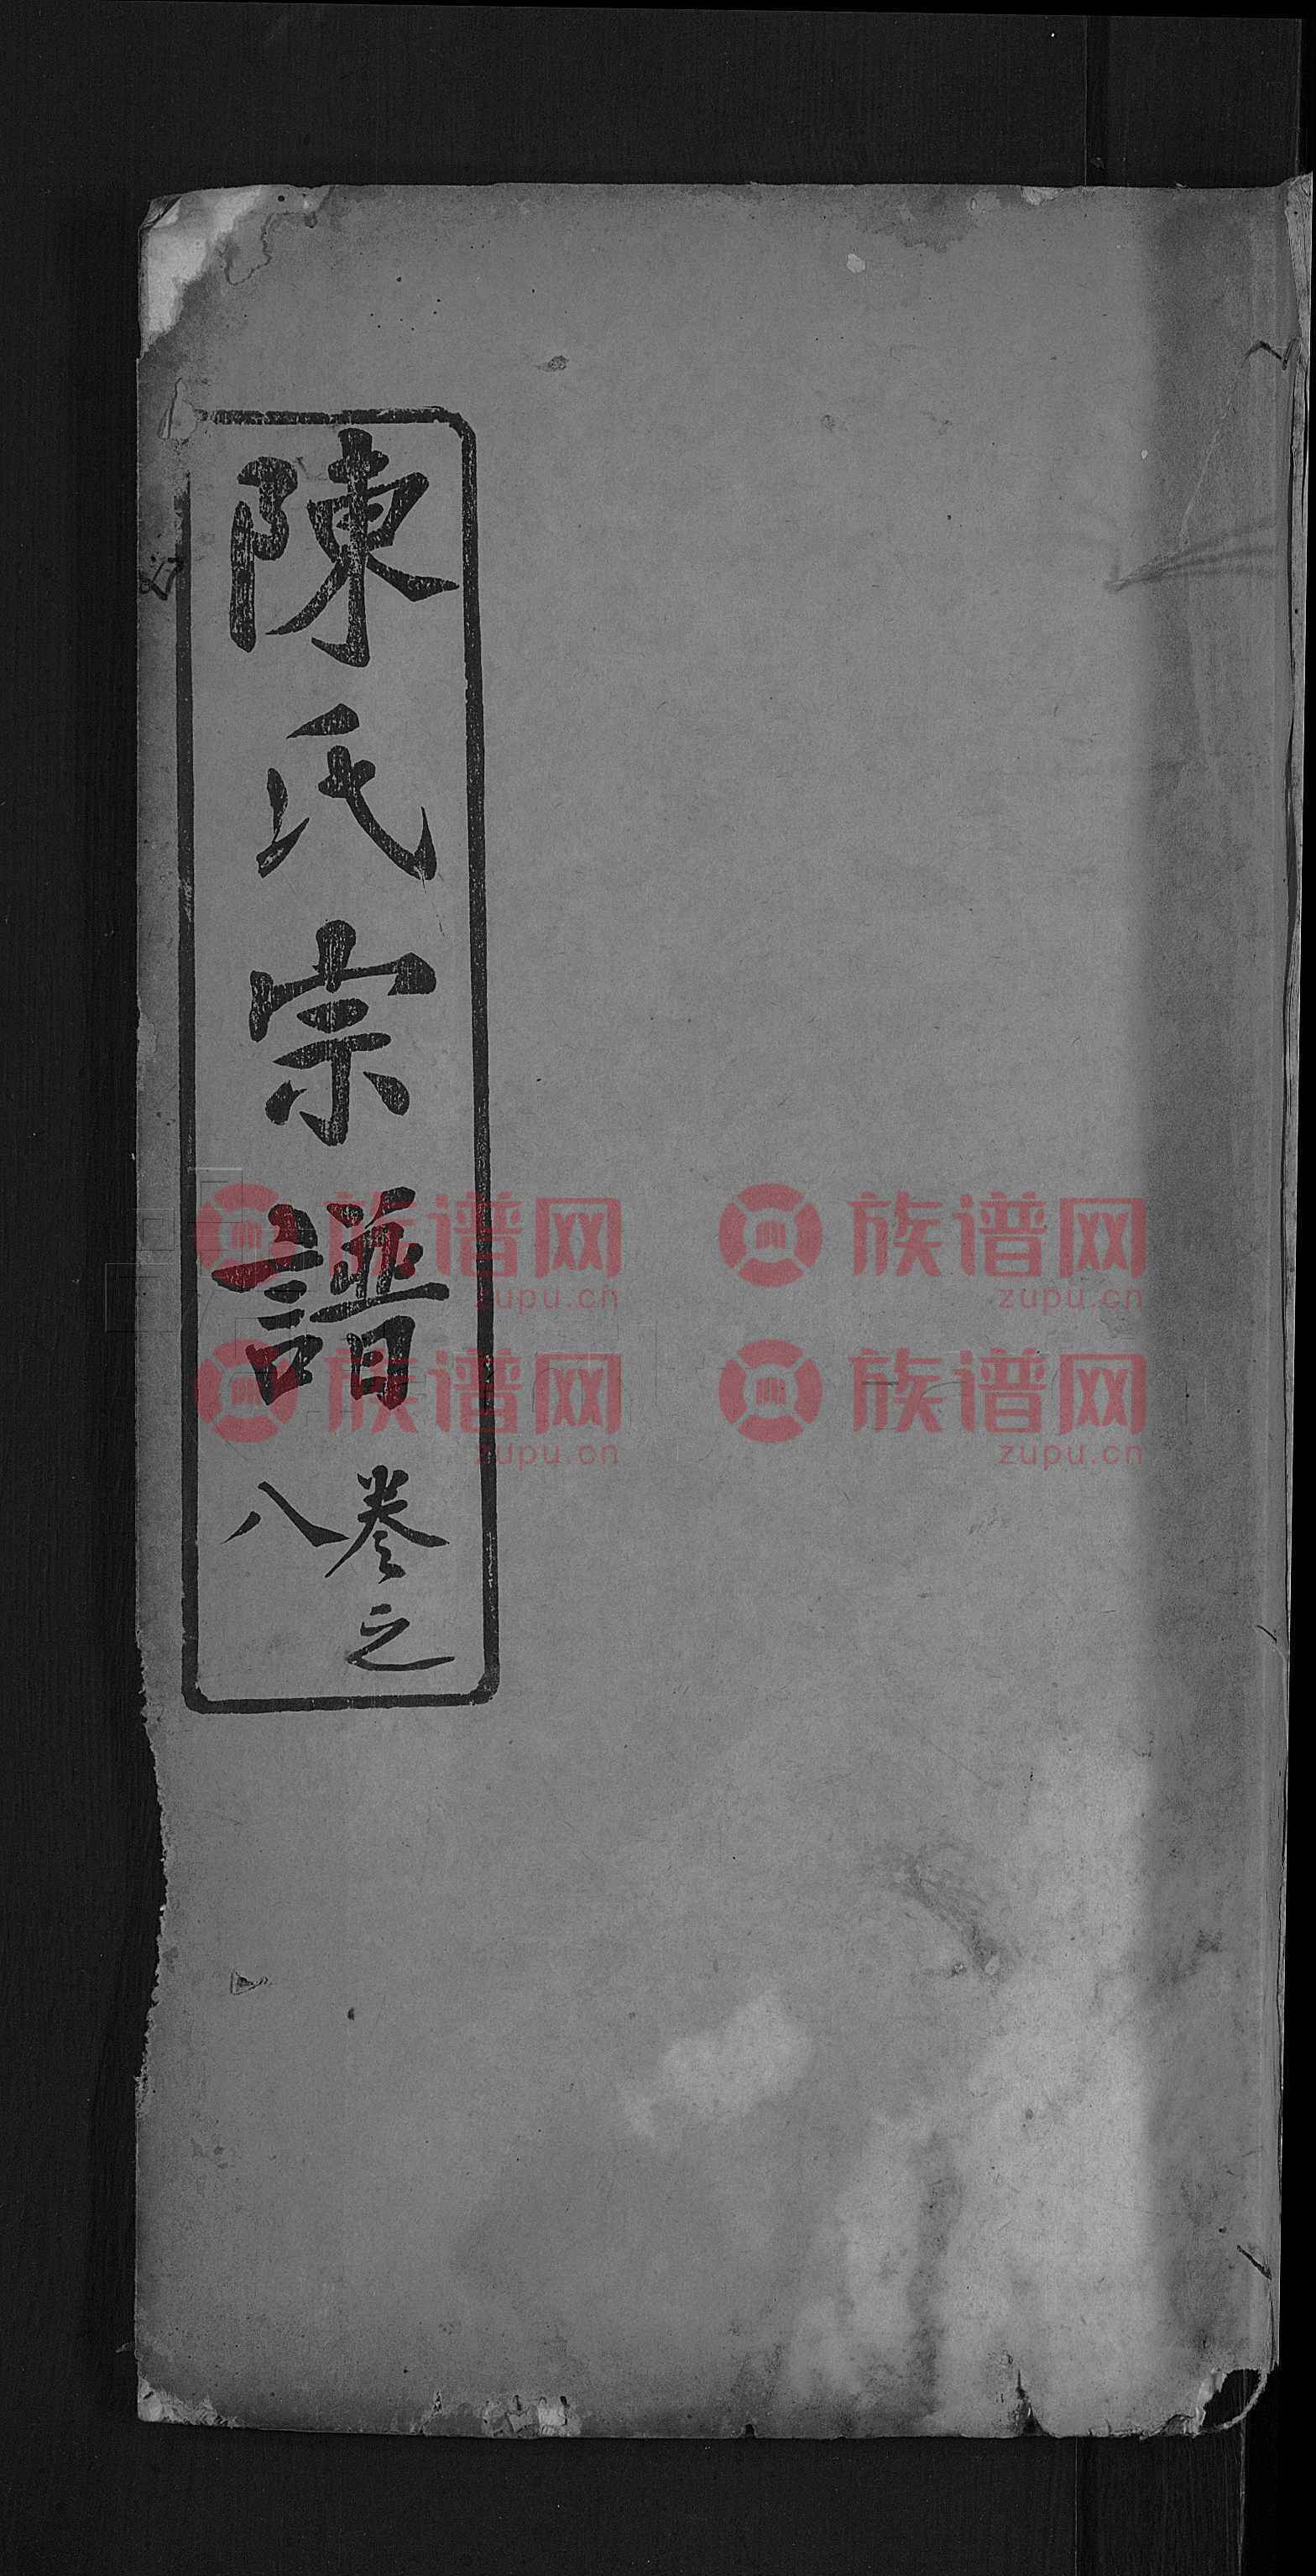 陳氏宗譜
卷之
八
族谱网 族谱网
zupu.cn zupu.cn
族谱网 族谱网
zupu.cn zupu.cn